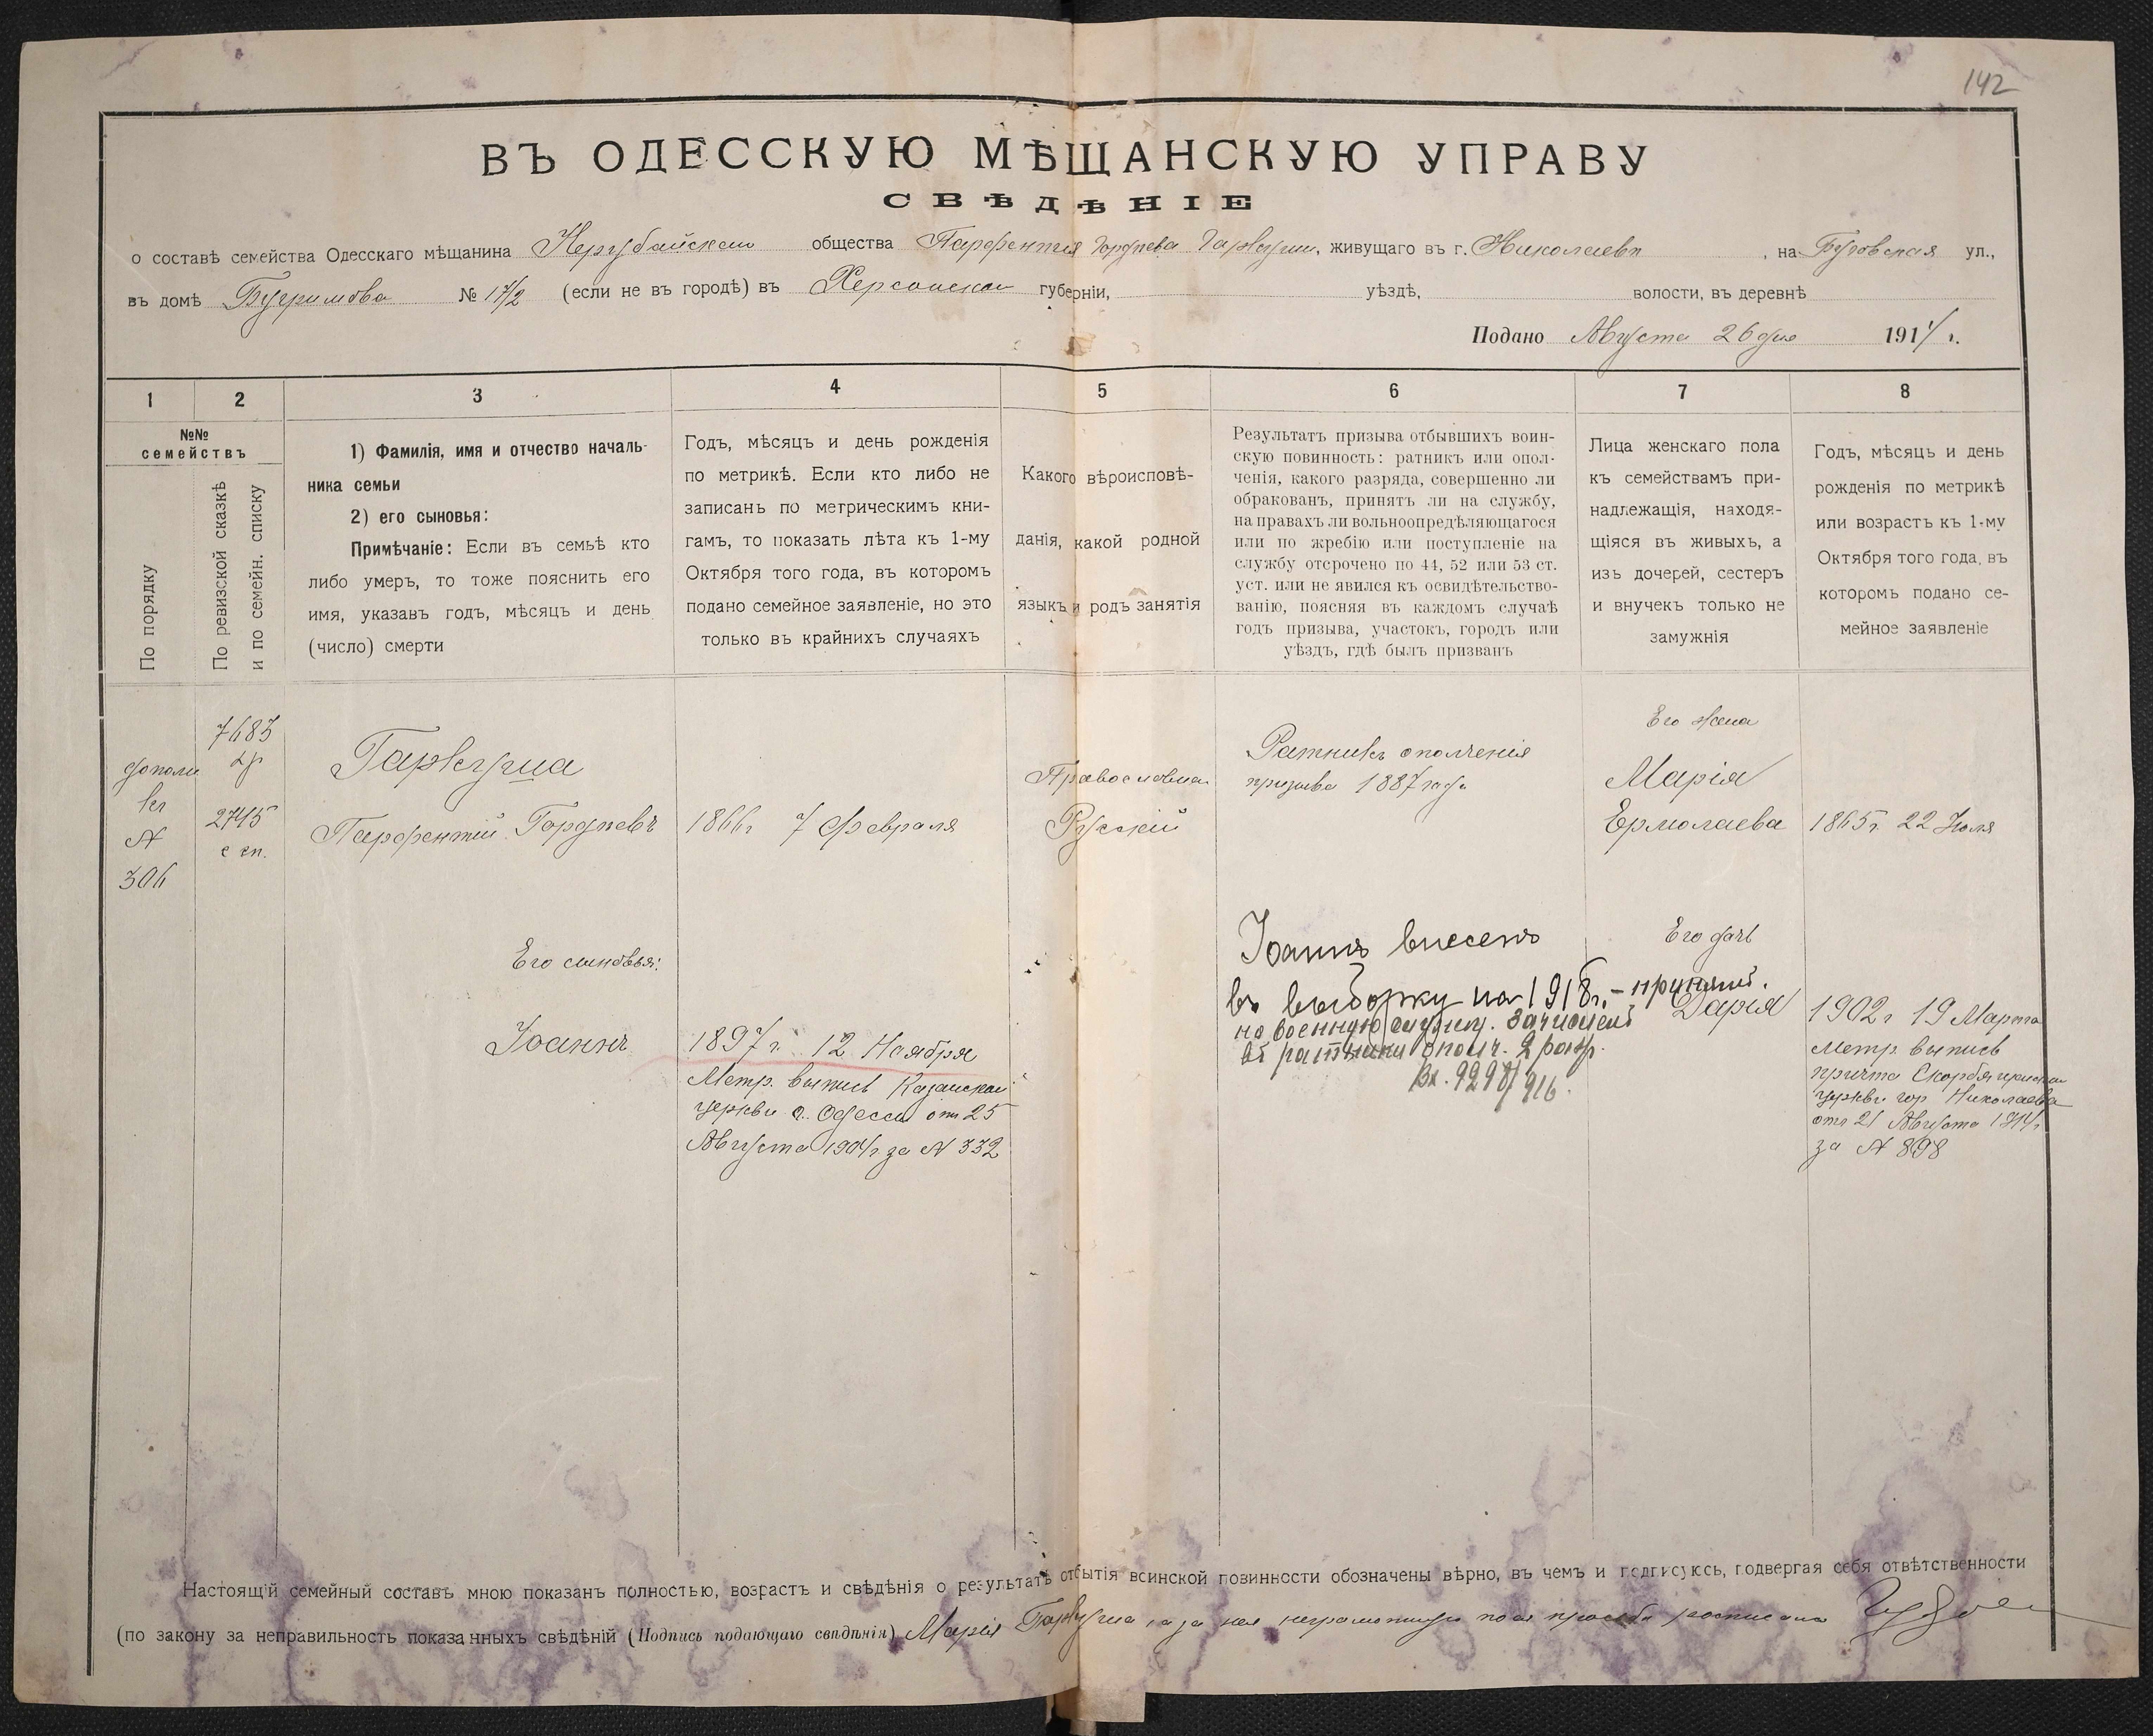 142
ВЪ ОДЕССКУЮ МѢЩАНСКУЮ УПРАВУ
СВѢДѢНІЕ
о составѣ семейства Одесскаго мѣщанина Нерубайскаго общества Парфентія Гордѣева Гаркуши, живущаго въ г. Николаевѣ, на ул.,
въ домѣ Бугримова № 17/2 (если не въ городѣ) въ Херсонской губерніи, уѣздѣ, волости, въ деревнѣ
Подано Августа 26 дня 1914 г.
1 2 3 4 5 6 7 8
№№
семействъ
По порядку
По ревизской сказкѣ
и по семейн. списку
1) Фамилія, имя и отчество началь-
ника семьи
2) его сыновья:
Примѣчаніе: Если въ семьѣ кто
либо умеръ, то тоже пояснить его
имя, указавъ годъ, мѣсяцъ и день
(число) смерти
Годъ, мѣсяцъ и день рожденія
по метрикѣ. Если кто либо не
записанъ по метрическимъ кни-
гамъ, то показать лѣта къ 1-му
Октября того года, въ которомъ
подано семейное заявленіе, но это
только въ крайнихъ случаяхъ
Какого вѣроисповѣ-
данія, какой родной
языкъ и родъ занятія
Результатъ призыва отбывшихъ воин-
скую повинность: ратникъ или опол-
ченія, какого разряда, совершенно ли
обракованъ, принятъ ли на службу,
на правахъ ли вольноопредѣляющагося
или по жребію или поступленіе на
службу отсрочено по 44, 52 или 53 ст.
уст. или не явился къ освидѣтельство-
ванію, поясняя въ каждомъ случаѣ
годъ призыва, участокъ, городъ или
уѣздъ, гдѣ былъ призванъ
Лица женскаго пола
къ семействамъ при-
надлежащія, находя-
щіяся въ живыхъ, а
изъ дочерей, сестеръ
и внучекъ только не
замужнія
Годъ, мѣсяцъ и день
рожденія по метрикѣ
или возрастъ къ 1-му
Октября того года, въ
которомъ подано се-
мейное заявленіе
7683
2745
с сп.
№
306
Гаркуша
Парфентій Гордѣевъ
1866 г 7 Февраля
Православная
Русскій
Ратникъ ополченія
призыва 1887 года
Его жена
Марія
Ермолаева
1865 г. 22 Іюля
Его сыновья:
Іоаннъ
1897 г. 12 Ноября
Метр. выпись Казанской
церкви г. Одессы отъ 25
Августа 1904 г за № 332
Іоаннъ внесенъ
въ выборку на 1918 г. – принятъ.
на военную службу. Зачисленъ
въ ратники ополч. 2 разр.
Вх. 9298/916.
Его дочь
Дарія
1902 г 19 Марта
Метр. выпись
причта Скорбященской
церкви гор Николаева
отъ 21 Августа 1914 г
за № 898
Настоящій семейный составъ мною показанъ полностью, возрастъ и свѣдѣнія о результатѣ отбытія воинской повинности обозначены вѣрно, въ чемъ и подписуюсь, подвергая себя отвѣтственности
(по закону за неправильность показанныхъ свѣдѣній (Подпись подающаго свѣдѣнія) Марія Гаркуша, а за нея неграмотную по ея просьбѣ росписался